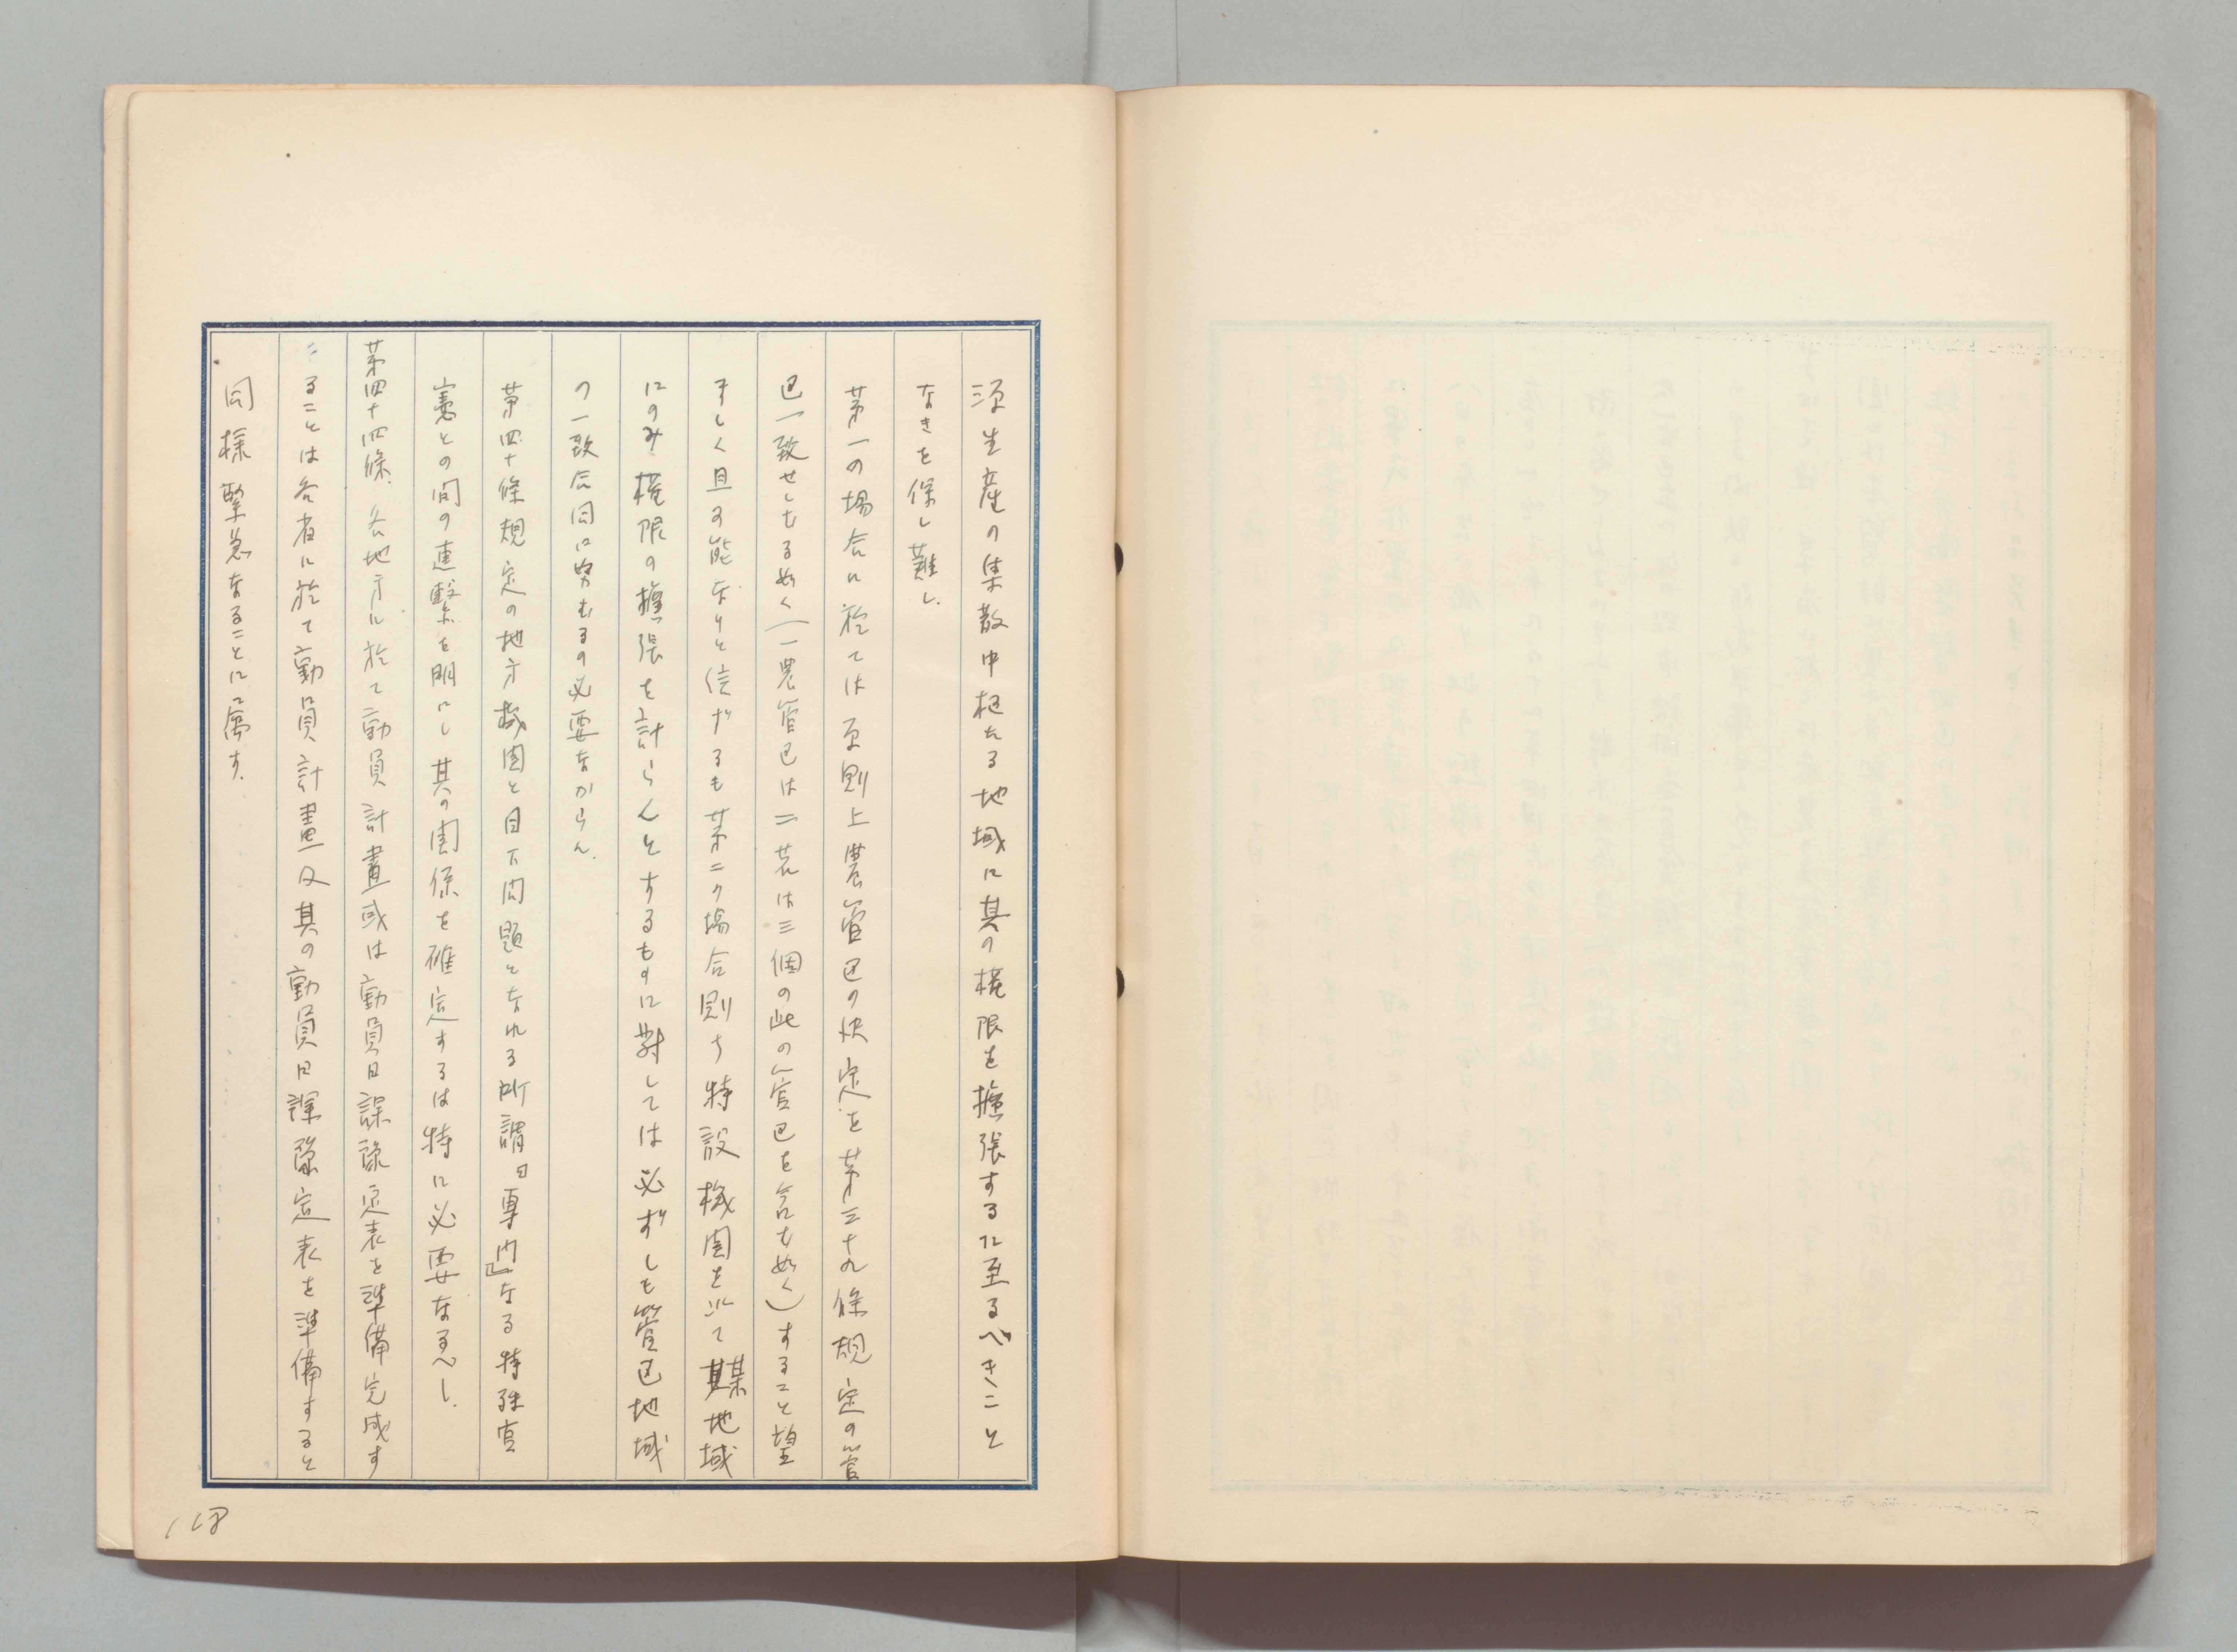 源生産の集散中枢たる地域に其の権限を擴張するに至るべきこと
なきを保し難し.
第一の場合に於ては原則上農管区の決定を第三十九條規定の管
区一致せしむる如く(一農管区は二若は三個の此の管区を含む如く)すること望
ましく且可能なりと信ずるも第二の場合則ち特設機関を以て某地域
にのみ権限の擴張を計らんとするものに対しては必ずしも管区地域
の一致合同に努むるの必要なからん.
第四十條規定の地方機関と目下問題となれる所謂『専門』なる特殊官
憲との間の連繋を明にし其の関係を確定するは特に必要なるべし.
第四十四條.各地方に於て動員計畫或は動員日課豫定表を準備完成す
ることは各省に於て動員計畫及其の動員日課豫定表を準備すると
同様緊急なることに属す.
118